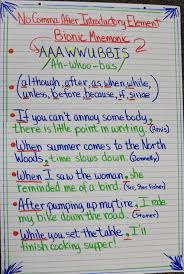 No Comma After Introductory Element
Bionic Mnemonic
AAAWWUBBIS
/Ah-whoo-bus/
(although, after, as, when, while,
unless, before, because, if, since)
If you can't annoy somebody,
there is little point in writing. (Amis)
When summer comes to the North
Woods, time slows down. (Donnelly)
When I saw the woman, she
reminded me of a bird. (
After pumping up my tire, I rode
my bike down the road. (
While you set the table, I'll
finish cooking supper!